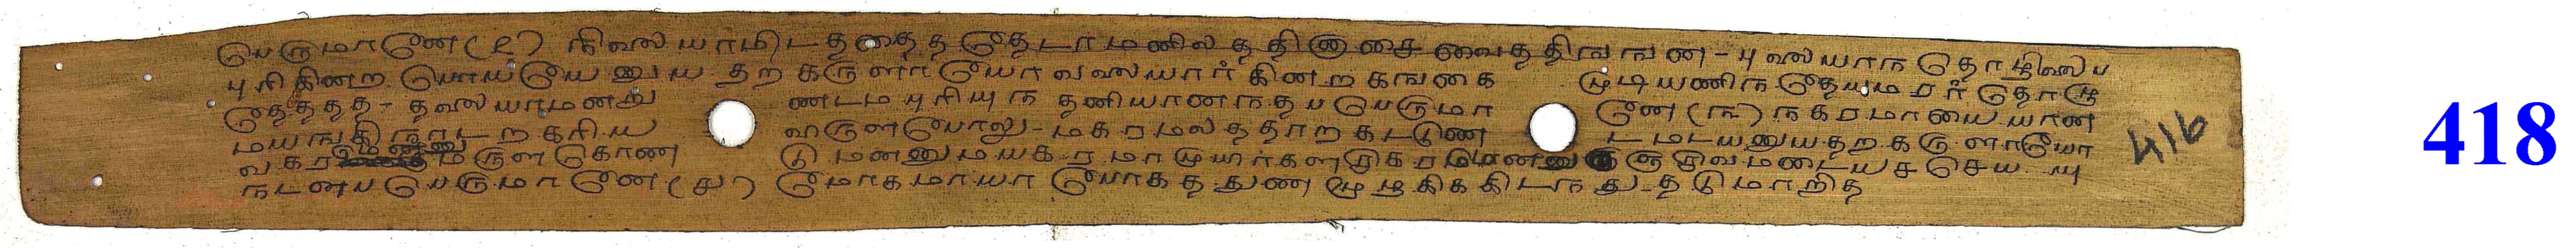 பெருமானே (உ) நிலையாமிடத்தைத் தேடாமனிலத்தினசை வைத்திஙங்ண - புலையாந தொழிலைப
புரிகினற பொய்யேனுய தற கருளாயோ வலையார் கினற கஙகை முடியணிந தேயமரர் தொழு
தேத்தத - தலையாமனறு ணடம புரியுந தனியானநதப பெருமா னே (ங) நகரமாயை யான
மயஙகி நாடற கரிய வருளபோலு - மகரமலத்தாற கட்டுண டமடயனுயதற கருளாயோ
வகர மருள கொண டு மனனுமயகர மாமுயிர்கள சிகர மெனனு சிவமடையச செய யு
நடனப பெருமானே (சு) மோகமாயா போகத்துண மூழகிக கிடந து - தடுமாறித
416
418